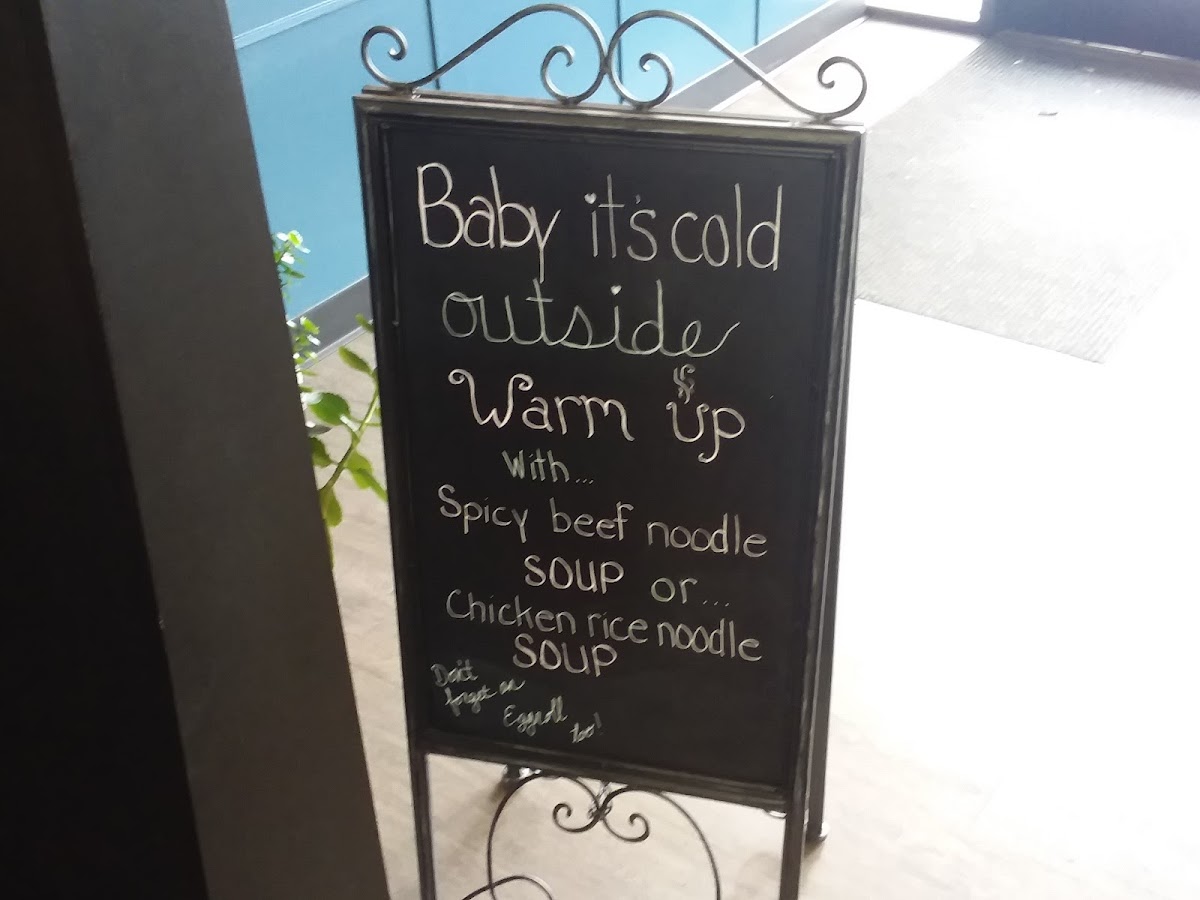 Baby it's cold
outside
Warm up
with...
Spicy beef noodle
SOUP or...
Chicken rice noodle
SOUP
Don't
forget an
Eggroll
too!